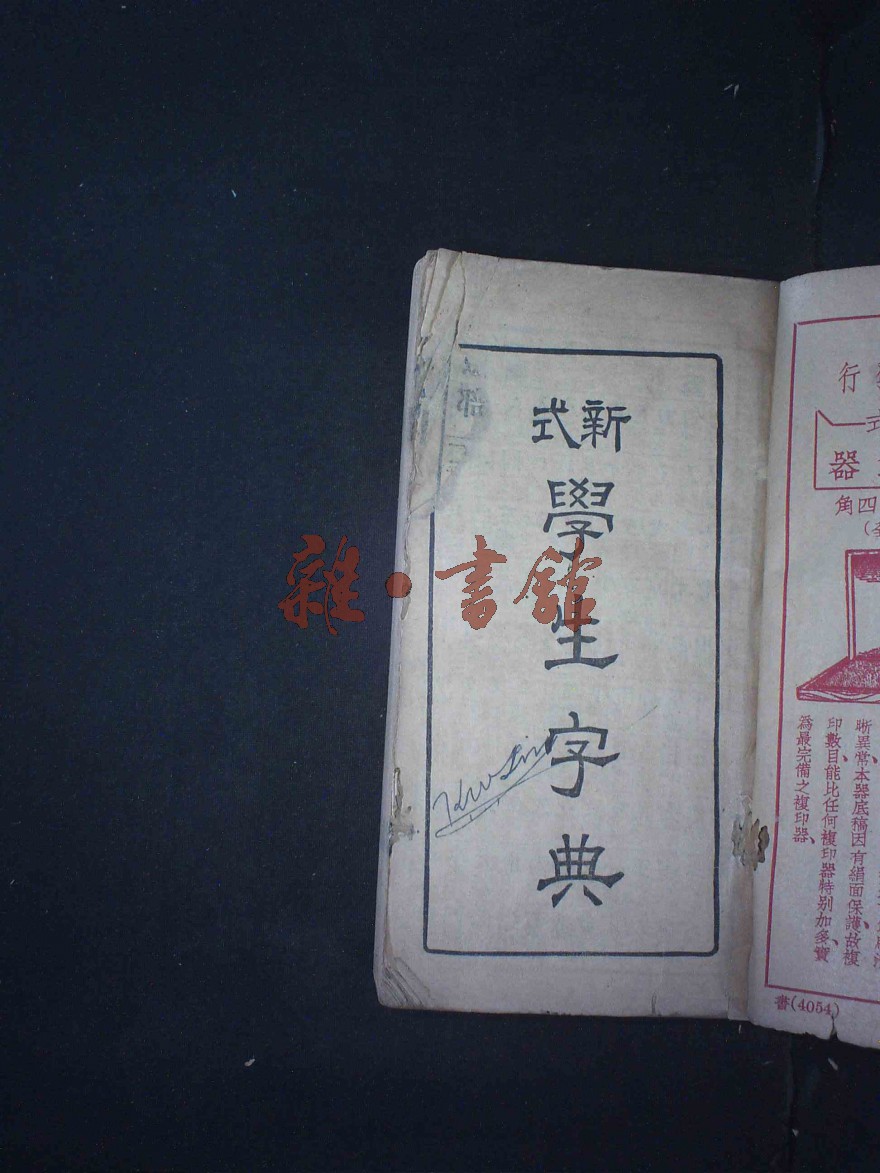 新式
學生字典
雜·書館
行
式
器
四角
晰異常本器底稿因有絹面保護故複
印數目能比任何複印器特別加多實
為最完備之複印器
書(4054)
部